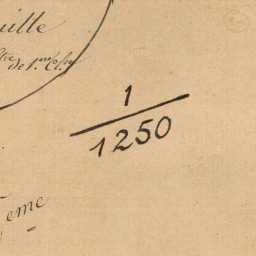 uille
de 1re Cl.
1
1250
eme